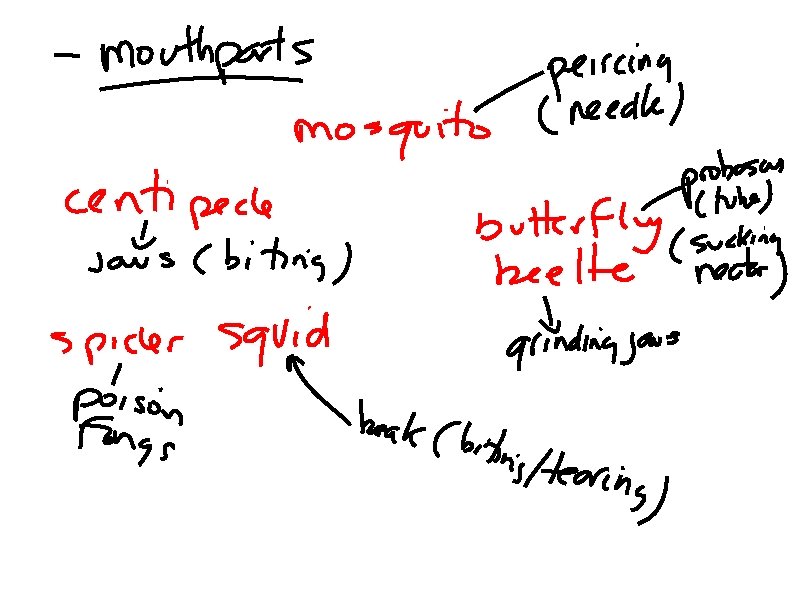 - mouthparts
peircing
(needle)
mosquito
centipede
jaws (biting)
proboscus
(tube)
(sucking
nectar)
butterfly
beelte
grinding jaws
spider
poison
fangs
squid
beak (biting/tearing)